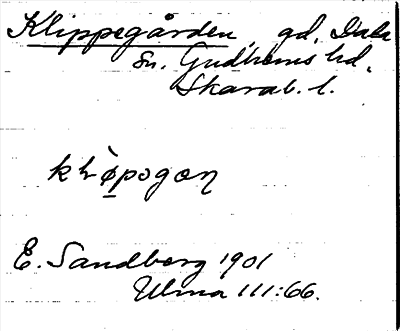 Klippegården, gd, Dala
sn. Gudhems hd,
Skarab. l.
E. Sandberg 1901
Ulma 111:66.